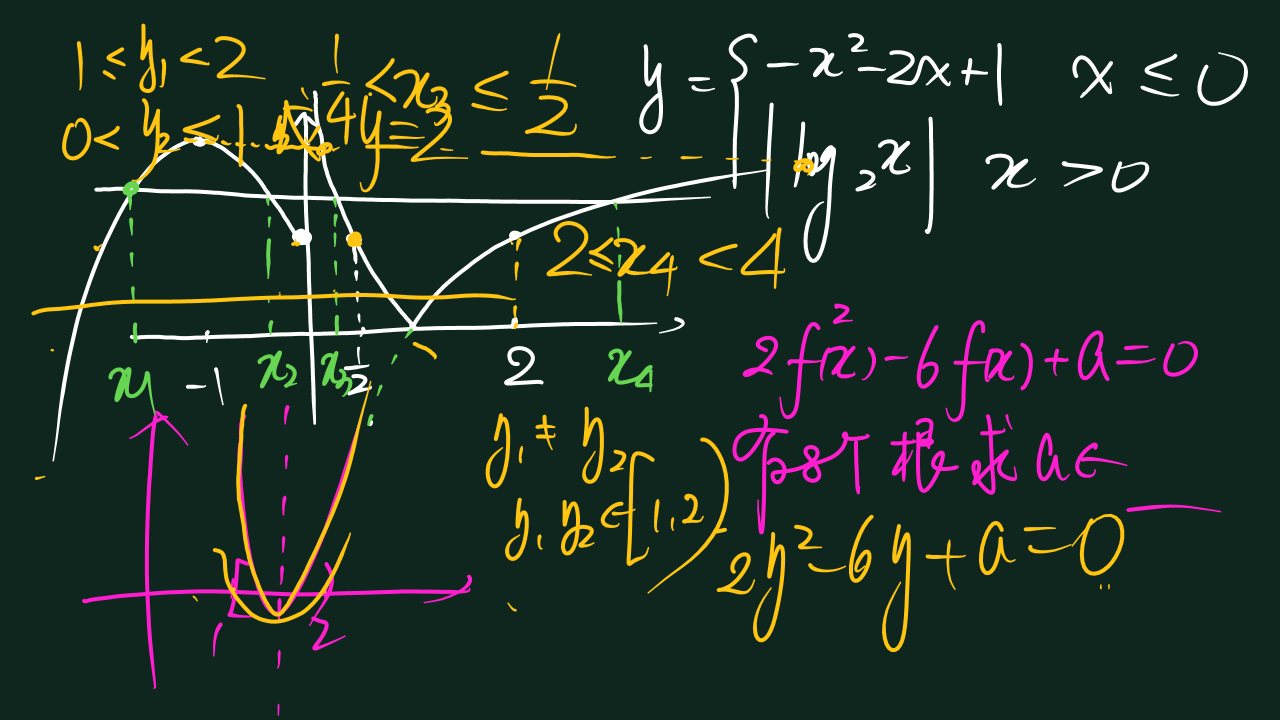 1 ≤ y₁ < 2
0 < y₂ ≤ 1
1/4 < x₃ ≤ 1/2
y = 2
y = { -x² - 2x + 1 x ≤ 0
|log₂x| x > 0
2 ≤ x₄ < 4
x₁ -1 x₂ x₃ 1/2 2 x₄
2f²(x) - 6f(x) + a = 0
有8个根求a∈
y₁ ≠ y₂
y₁ y₂ ∈ [1,2)
2y² - 6y + a = 0
1 2